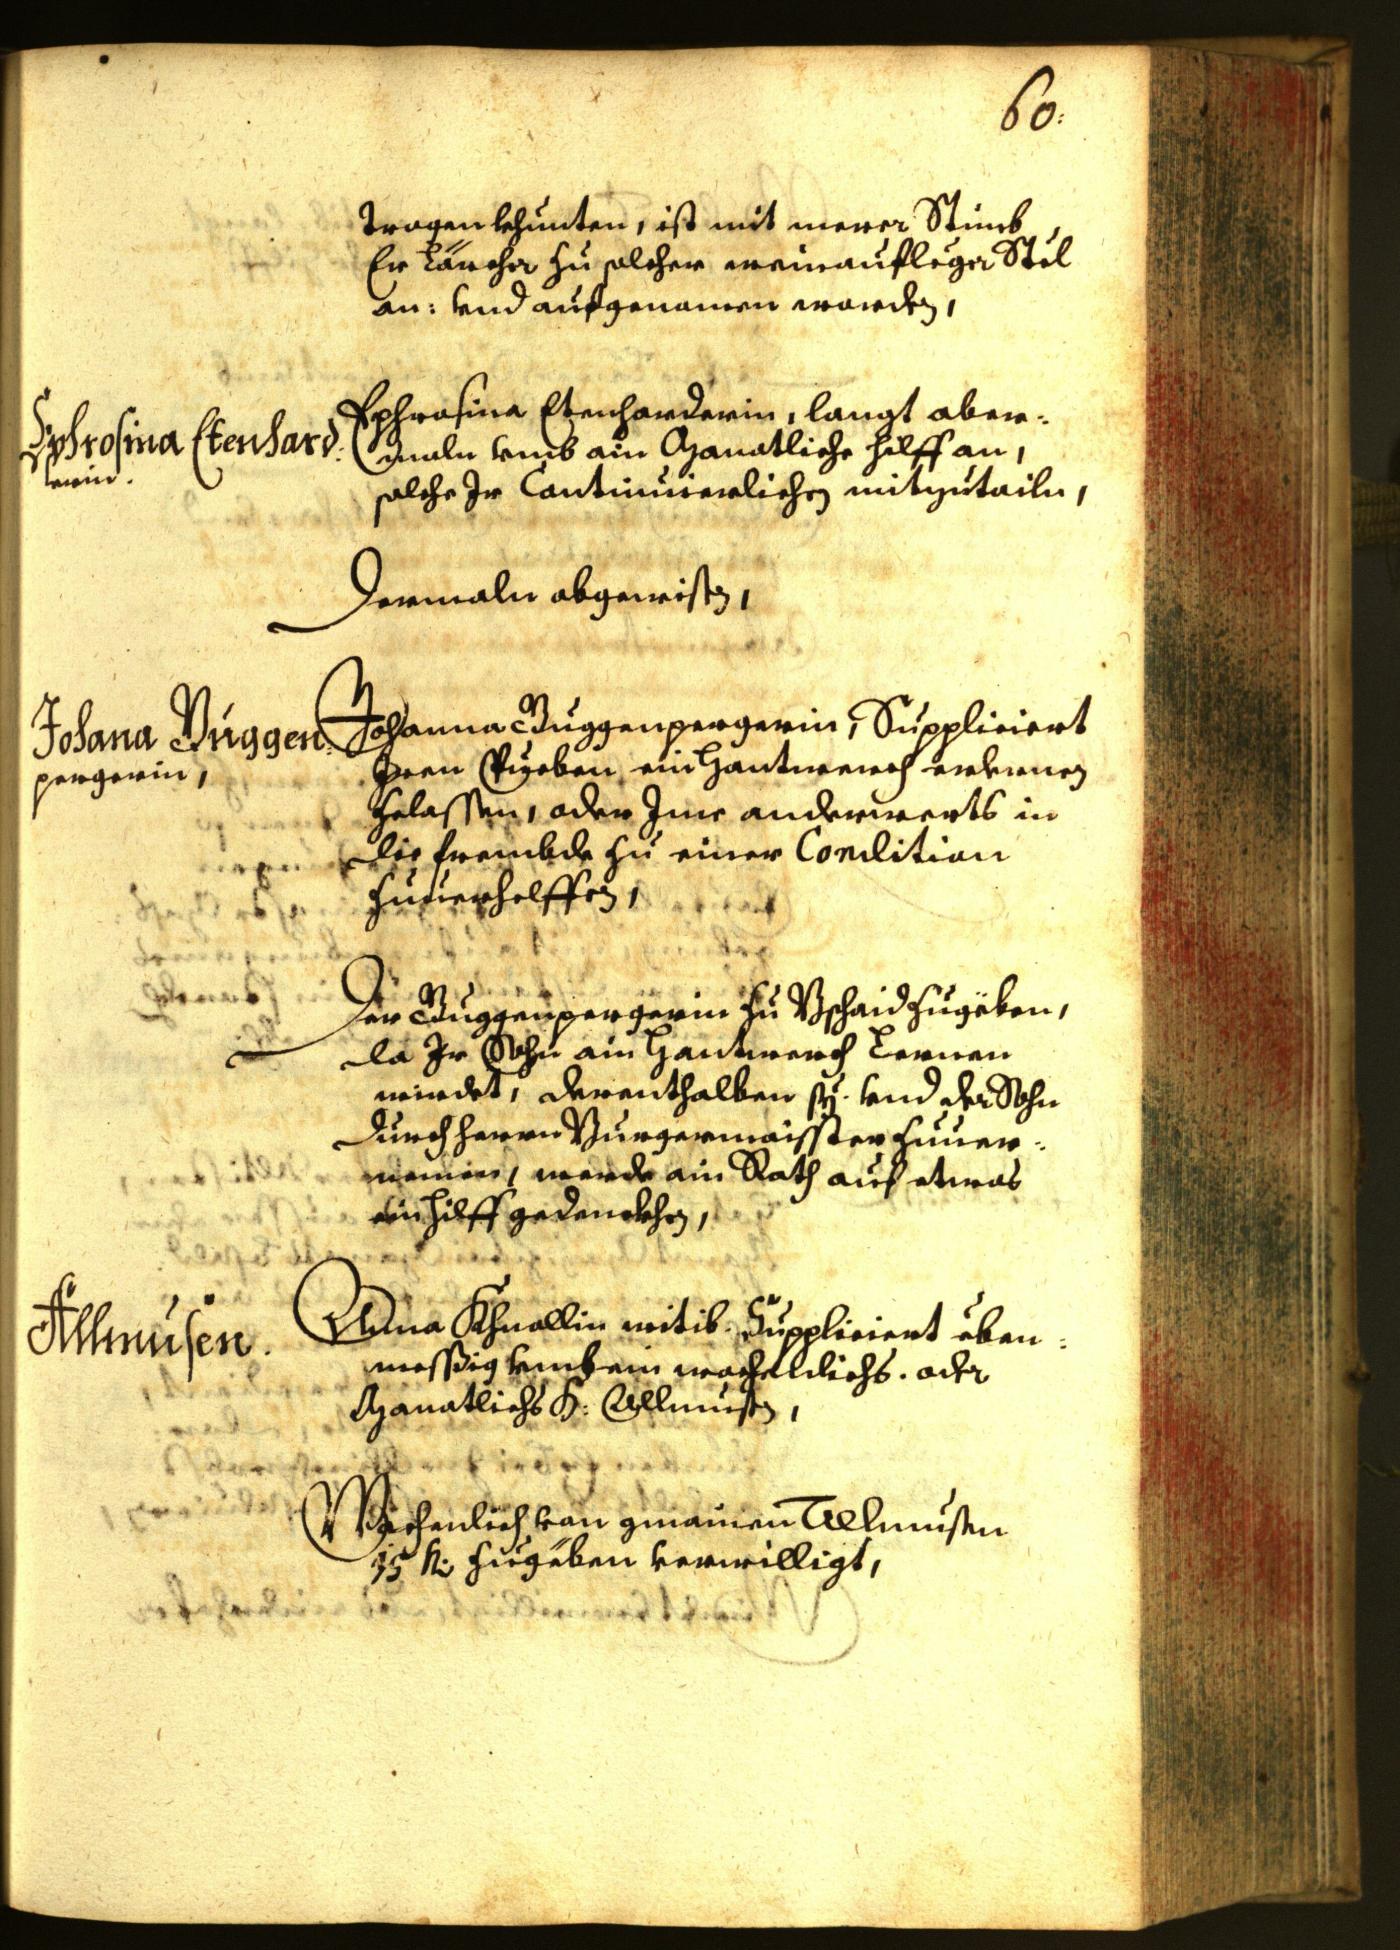 60.
tragen khunten, ist mit merer Stimb
Er Larcher zu solcher weinaufleger Stel
an: vnd aufgenomen worden,
Ephrosina Etenhard:
terin.
Ephrosina Etenharderin, langt aber=
maln vmb ain Monatliche hilff an,
solche Ir Continuierlichen mitzutailn,
Dermaln abgewisen,
Johana Buggen:
pergerin,
Johanna Buggenpergerin, Suppliciert
Iren Pueben ein Hantwerch erlernen
zelassen, oder Ime anderwerts in
die frembde zu einer Condition
zuuerhelffen,
Der Buggenpergerin zu Bschaid zugeben,
da Ir Sohn ain Hantwerch Lernen
wirdet, derenthalben sy vnd der Sohn
durch herrn Burgermaister zuuer=
nemen, werde ain Rath auf etwas
ein hilff gedenckhen,
Allmusen.
Anna Khnollin witib. Suppliciert eben=
messig vmb ein wochendlichs. oder
Monatlichs H: Allmusen,
Wochenlich von gmainen Allmusen
15 kr: zugeben verwilligt,